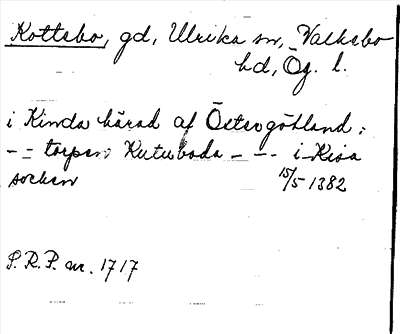 Kottebo, gd, Ulrika sn, Valkebo
hd, Ög. l.
i Kinda härad af Östergötland:
-- torpen Kutuboda --- i Kisa
socken 15/5 1382
S.R.P. nr. 1717